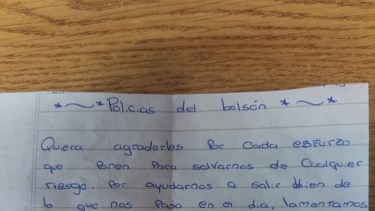 *~*Policias del bolsón *~*
Quera agradarles Por cada esfurzo
que Ponen Para salvarnos de Cualquier
riesgo Por ayudarnos a salir bien de
lo que nos Paso en el dia, lamentamos